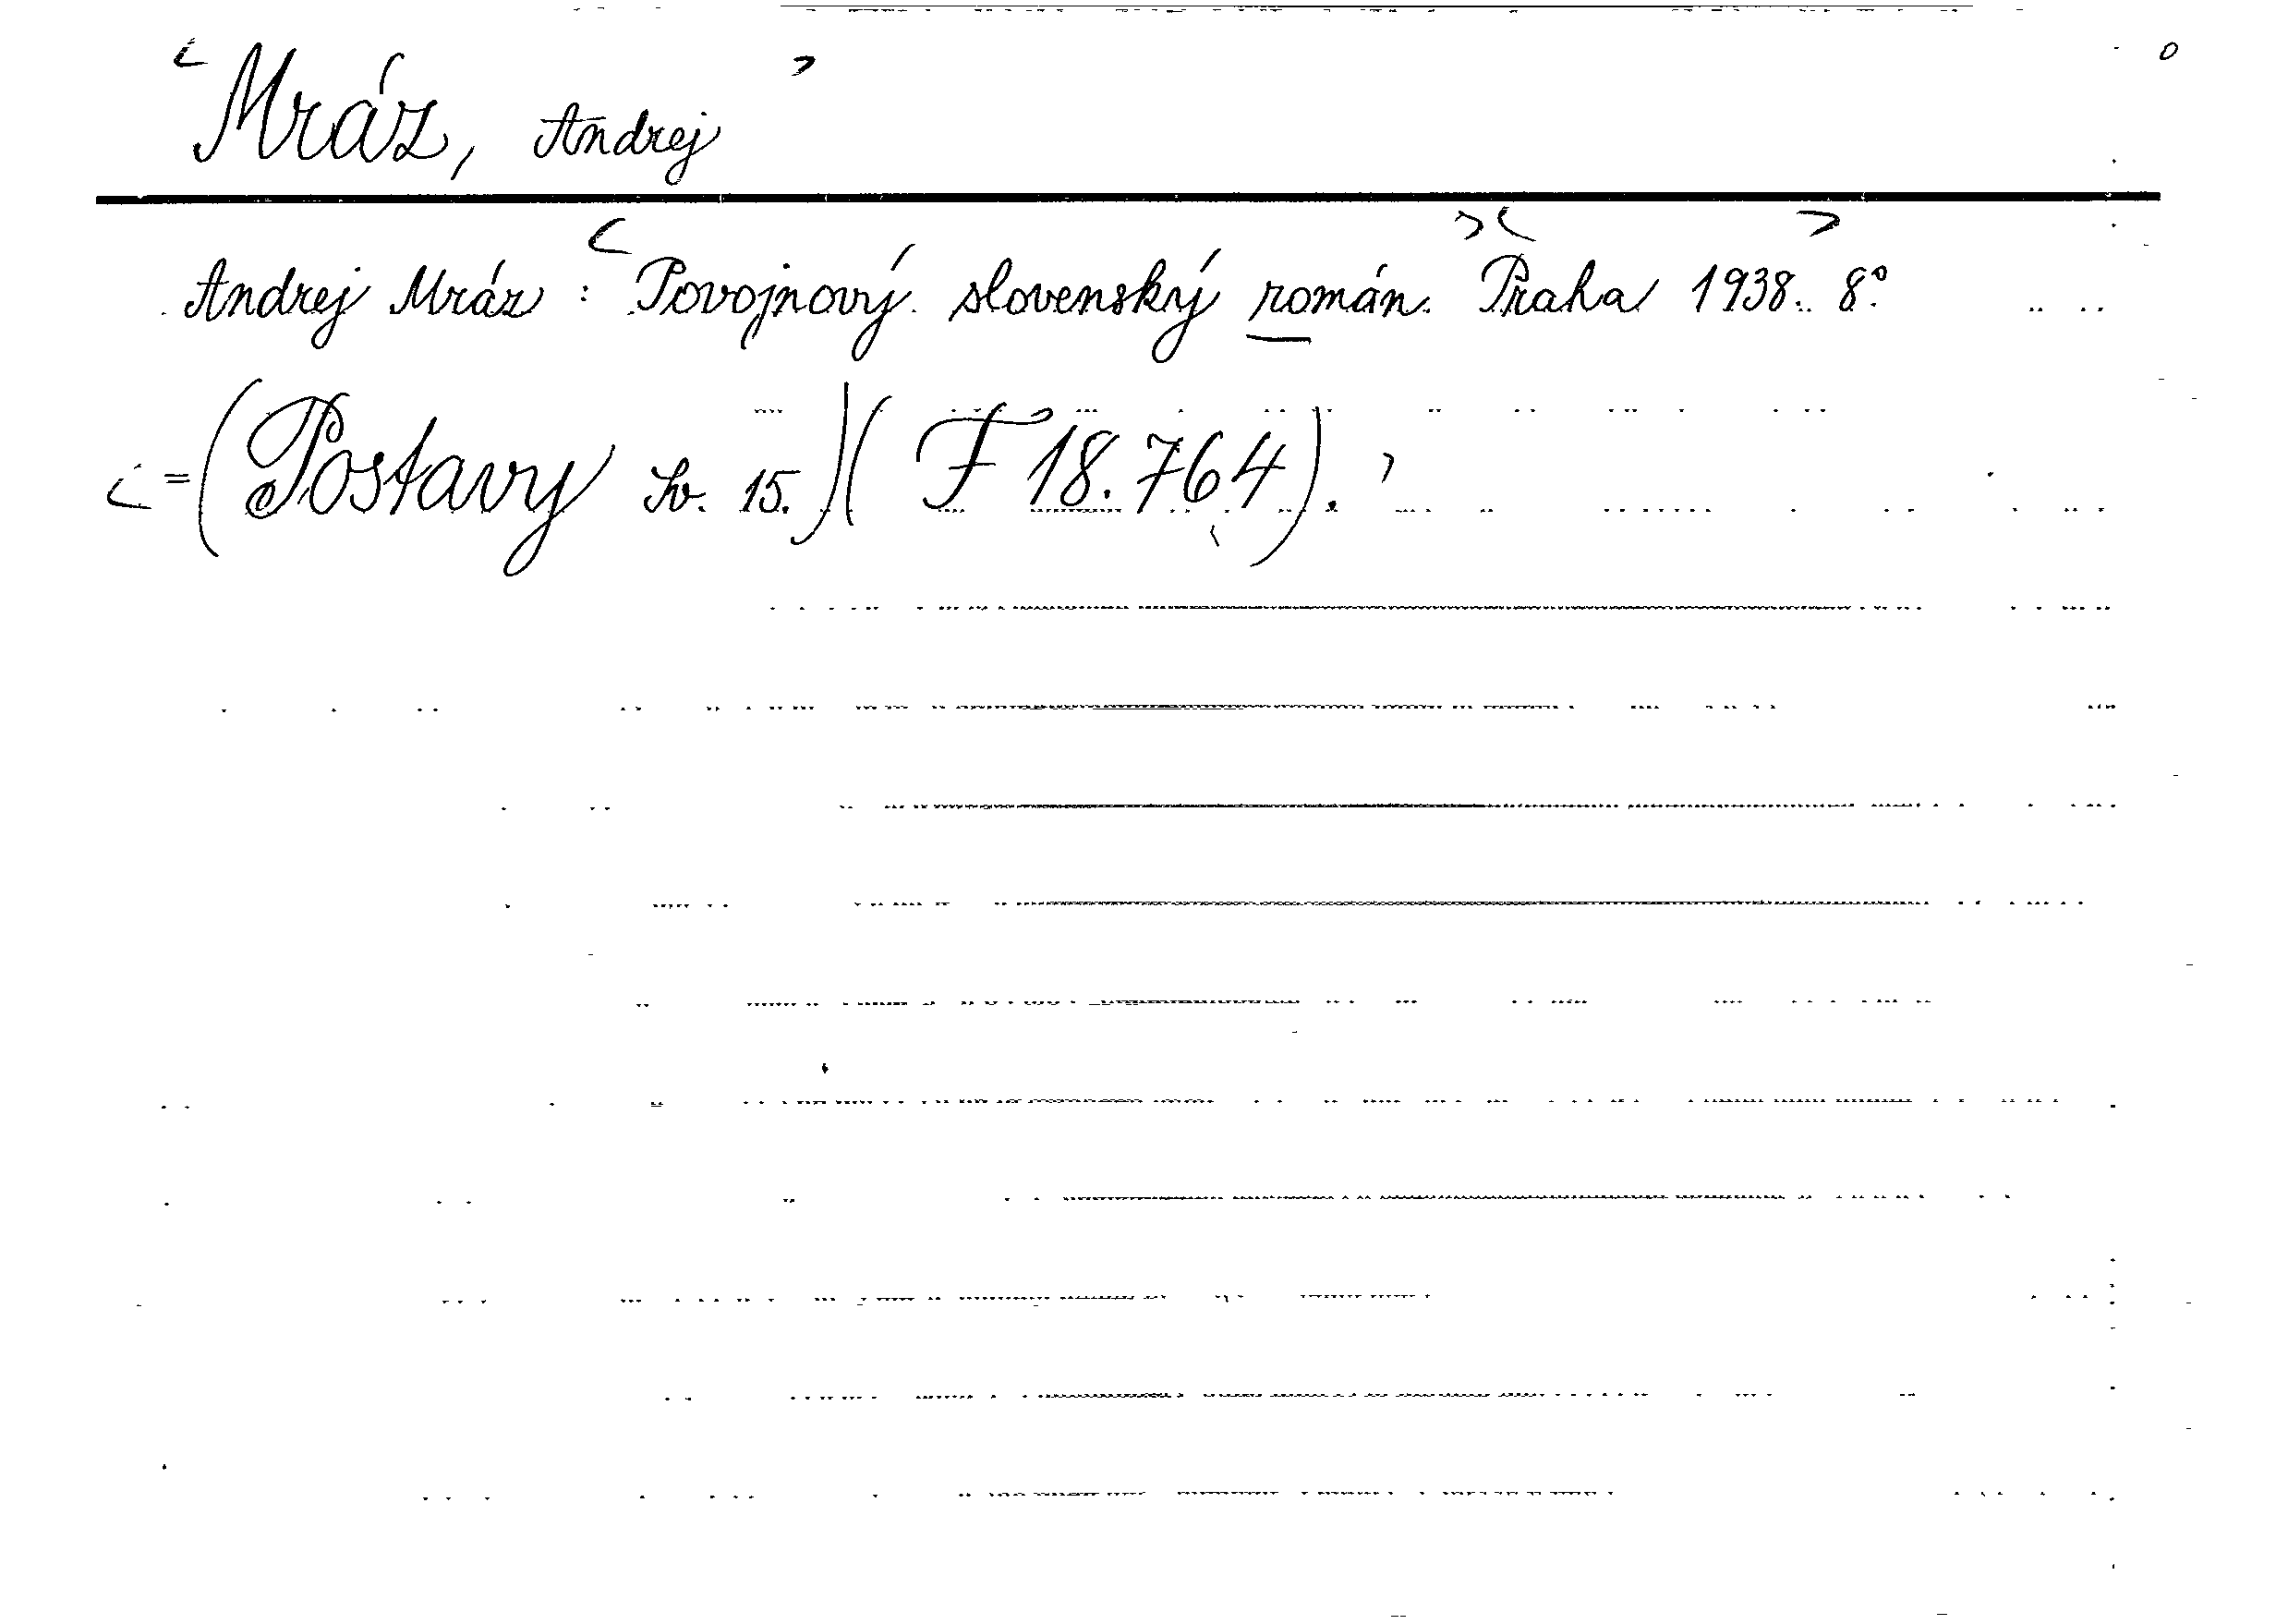 <Mráz, Andrej> 0
Andrej Mráz : <Povojnový slovenský román.> <Praha> 1938. 8°
<=(Postavy Sv. 15.)(F 18.764).>